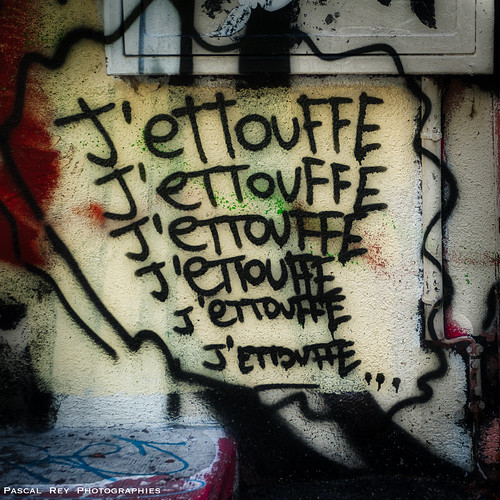 J'ETTOUFFE
J'ETTOUFFE
J'ETTOUFFE
J'ETTOUFFE
J'ETTOUFFE
J'ETTOUFFE...
PASCAL REY PHOTOGRAPHIES